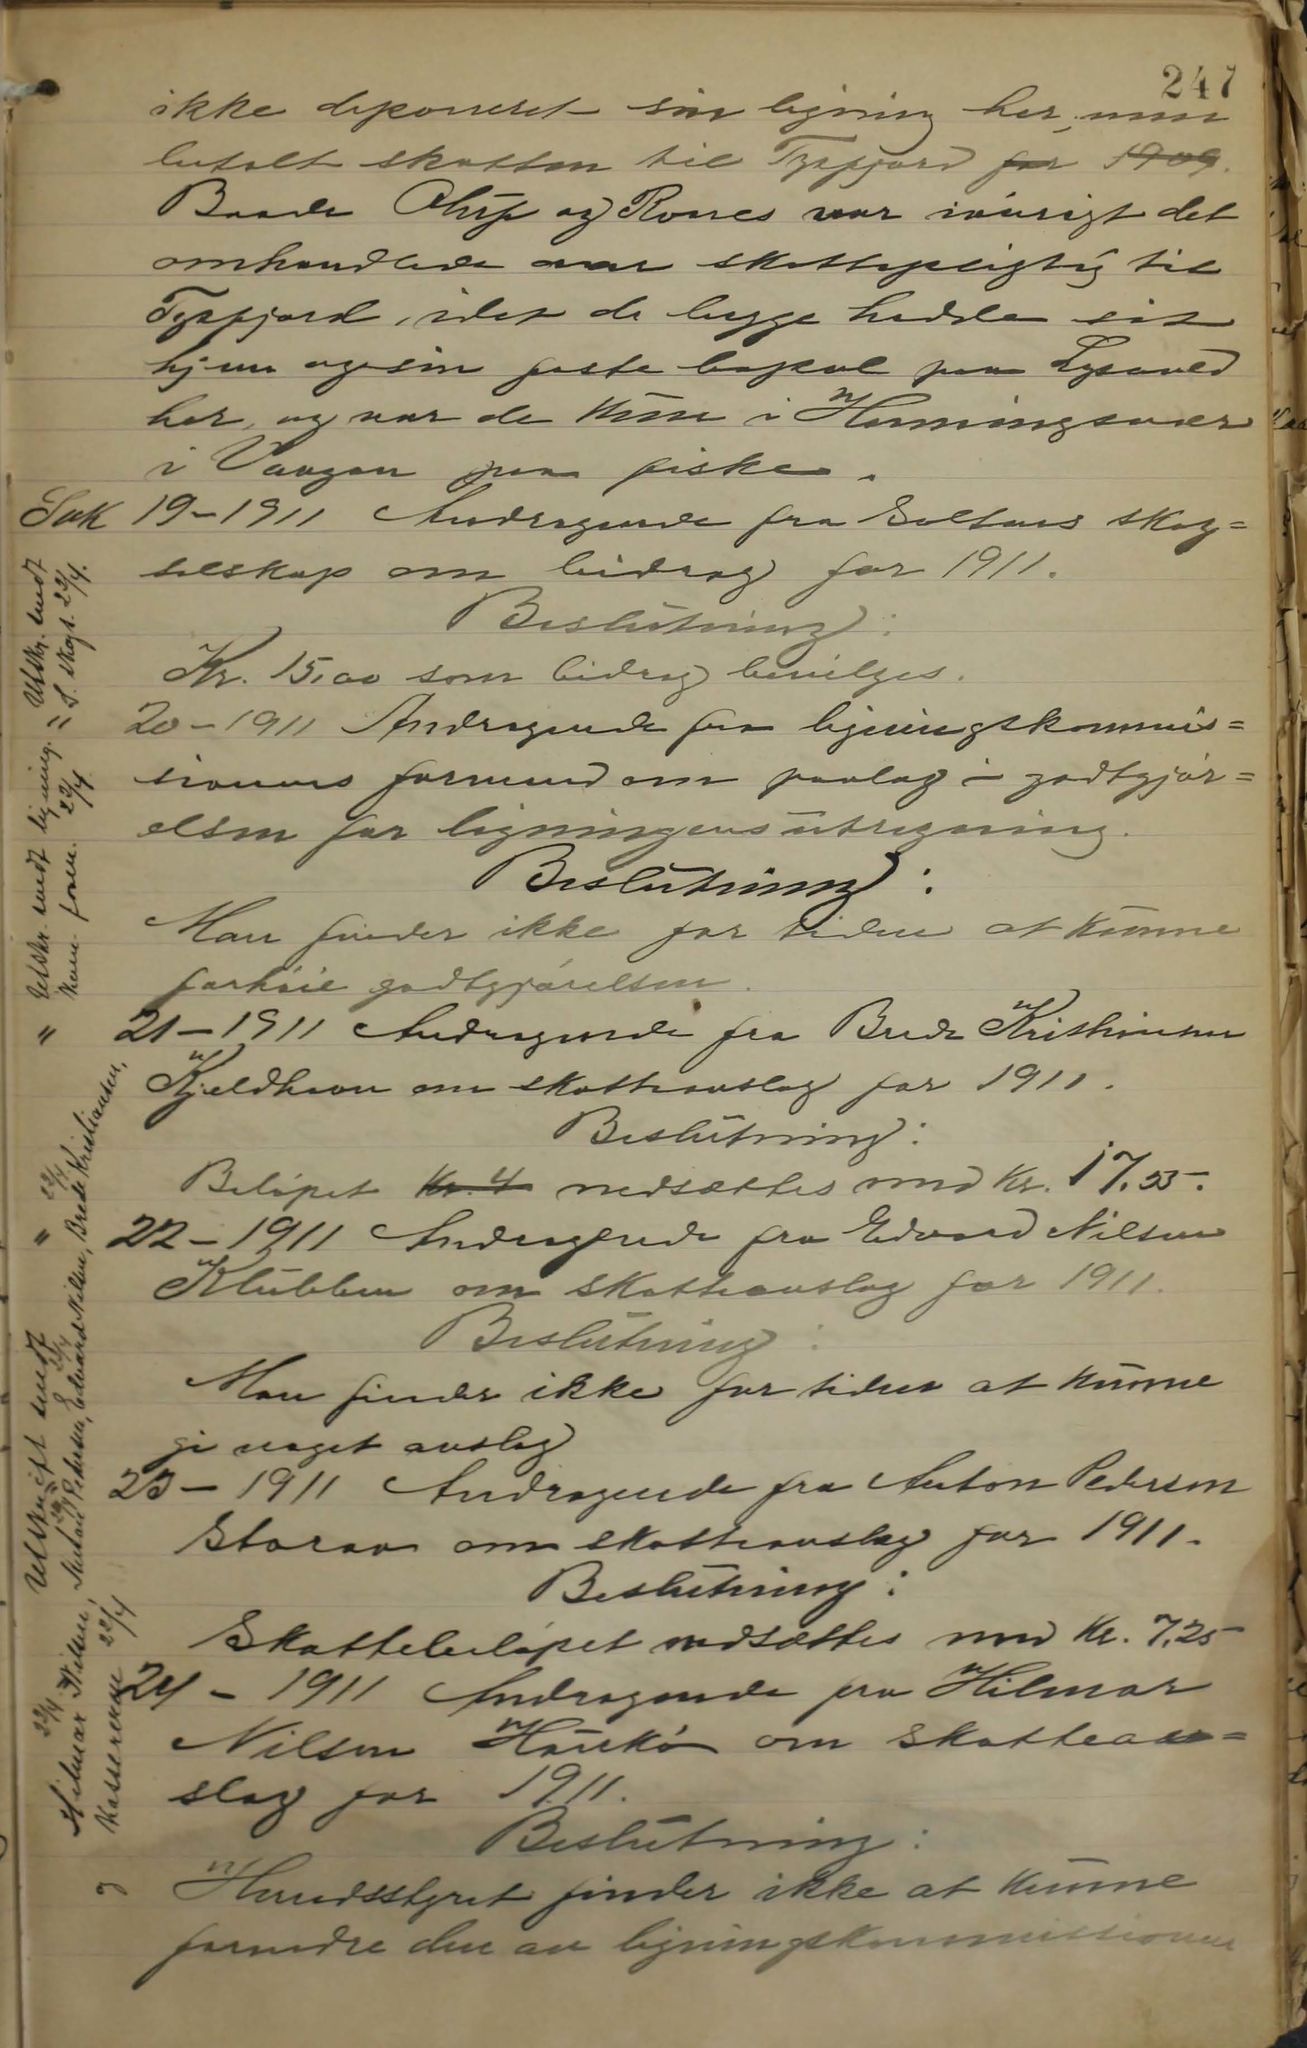 247
ikke deponeret sin ligning her, men
betalt skatten til Tysfjord for 1909.
Baade Oluf og Rones var iøvrigt det
omhandlede aar skattepligtig til
Tysfjord, idet de begge hadde sit
hjem og sin faste bopæl paa
her, og var de kun i Henningsvær
i Vaagan paa fiske.
Sak 19-1911 Andragende fra Saltens skog=
selskap om bidrag for 1911.
Beslutning:
Kr. 15,00 som bidrag bevilges.
" 20-1911 Andragende fra ligningskommis=
sionens formand om paalæg i godtgjør=
elsen for ligningens utregning.
Beslutning:
Man finder ikke for tiden at kunne
forhøie godtgjørelsen.
" 21-1911 Andragende fra Brede Kristiansen
Kjeldhavn om skatteavslag for 1911.
Beslutning:
Beløpet Kr. 4 nedsættes med Kr. 17.55.
" 22-1911 Andragende fra Edvard Nilsen
Klubben om skatteavslag for 1911.
Beslutning:
Man finder ikke for tiden at kunne
gi noget avslag
23-1911 Andragende fra Anton Pedersen
Storaa om skatteavslag for 1911.
Beslutning:
Skattebeløpet nedsættes med Kr. 7,25
24-1911 Andragende fra Hilmar
Nilsen Haukø om skatteav=
slag for 1911.
Beslutning:
Herredsstyret finder ikke at kunne
forandre den av ligningskommissionen
Utskr. sendt
S. skogs. 22/4.
Utskr. sendt ligning.
kom. form. 22/4
Utskrift sendt
Hilmar Nilsen, Anton Pedersen, Edvard Nilsen, Brede Kristiansen,
22/4 22/4 22/4 22/4
Kassereren 22/4